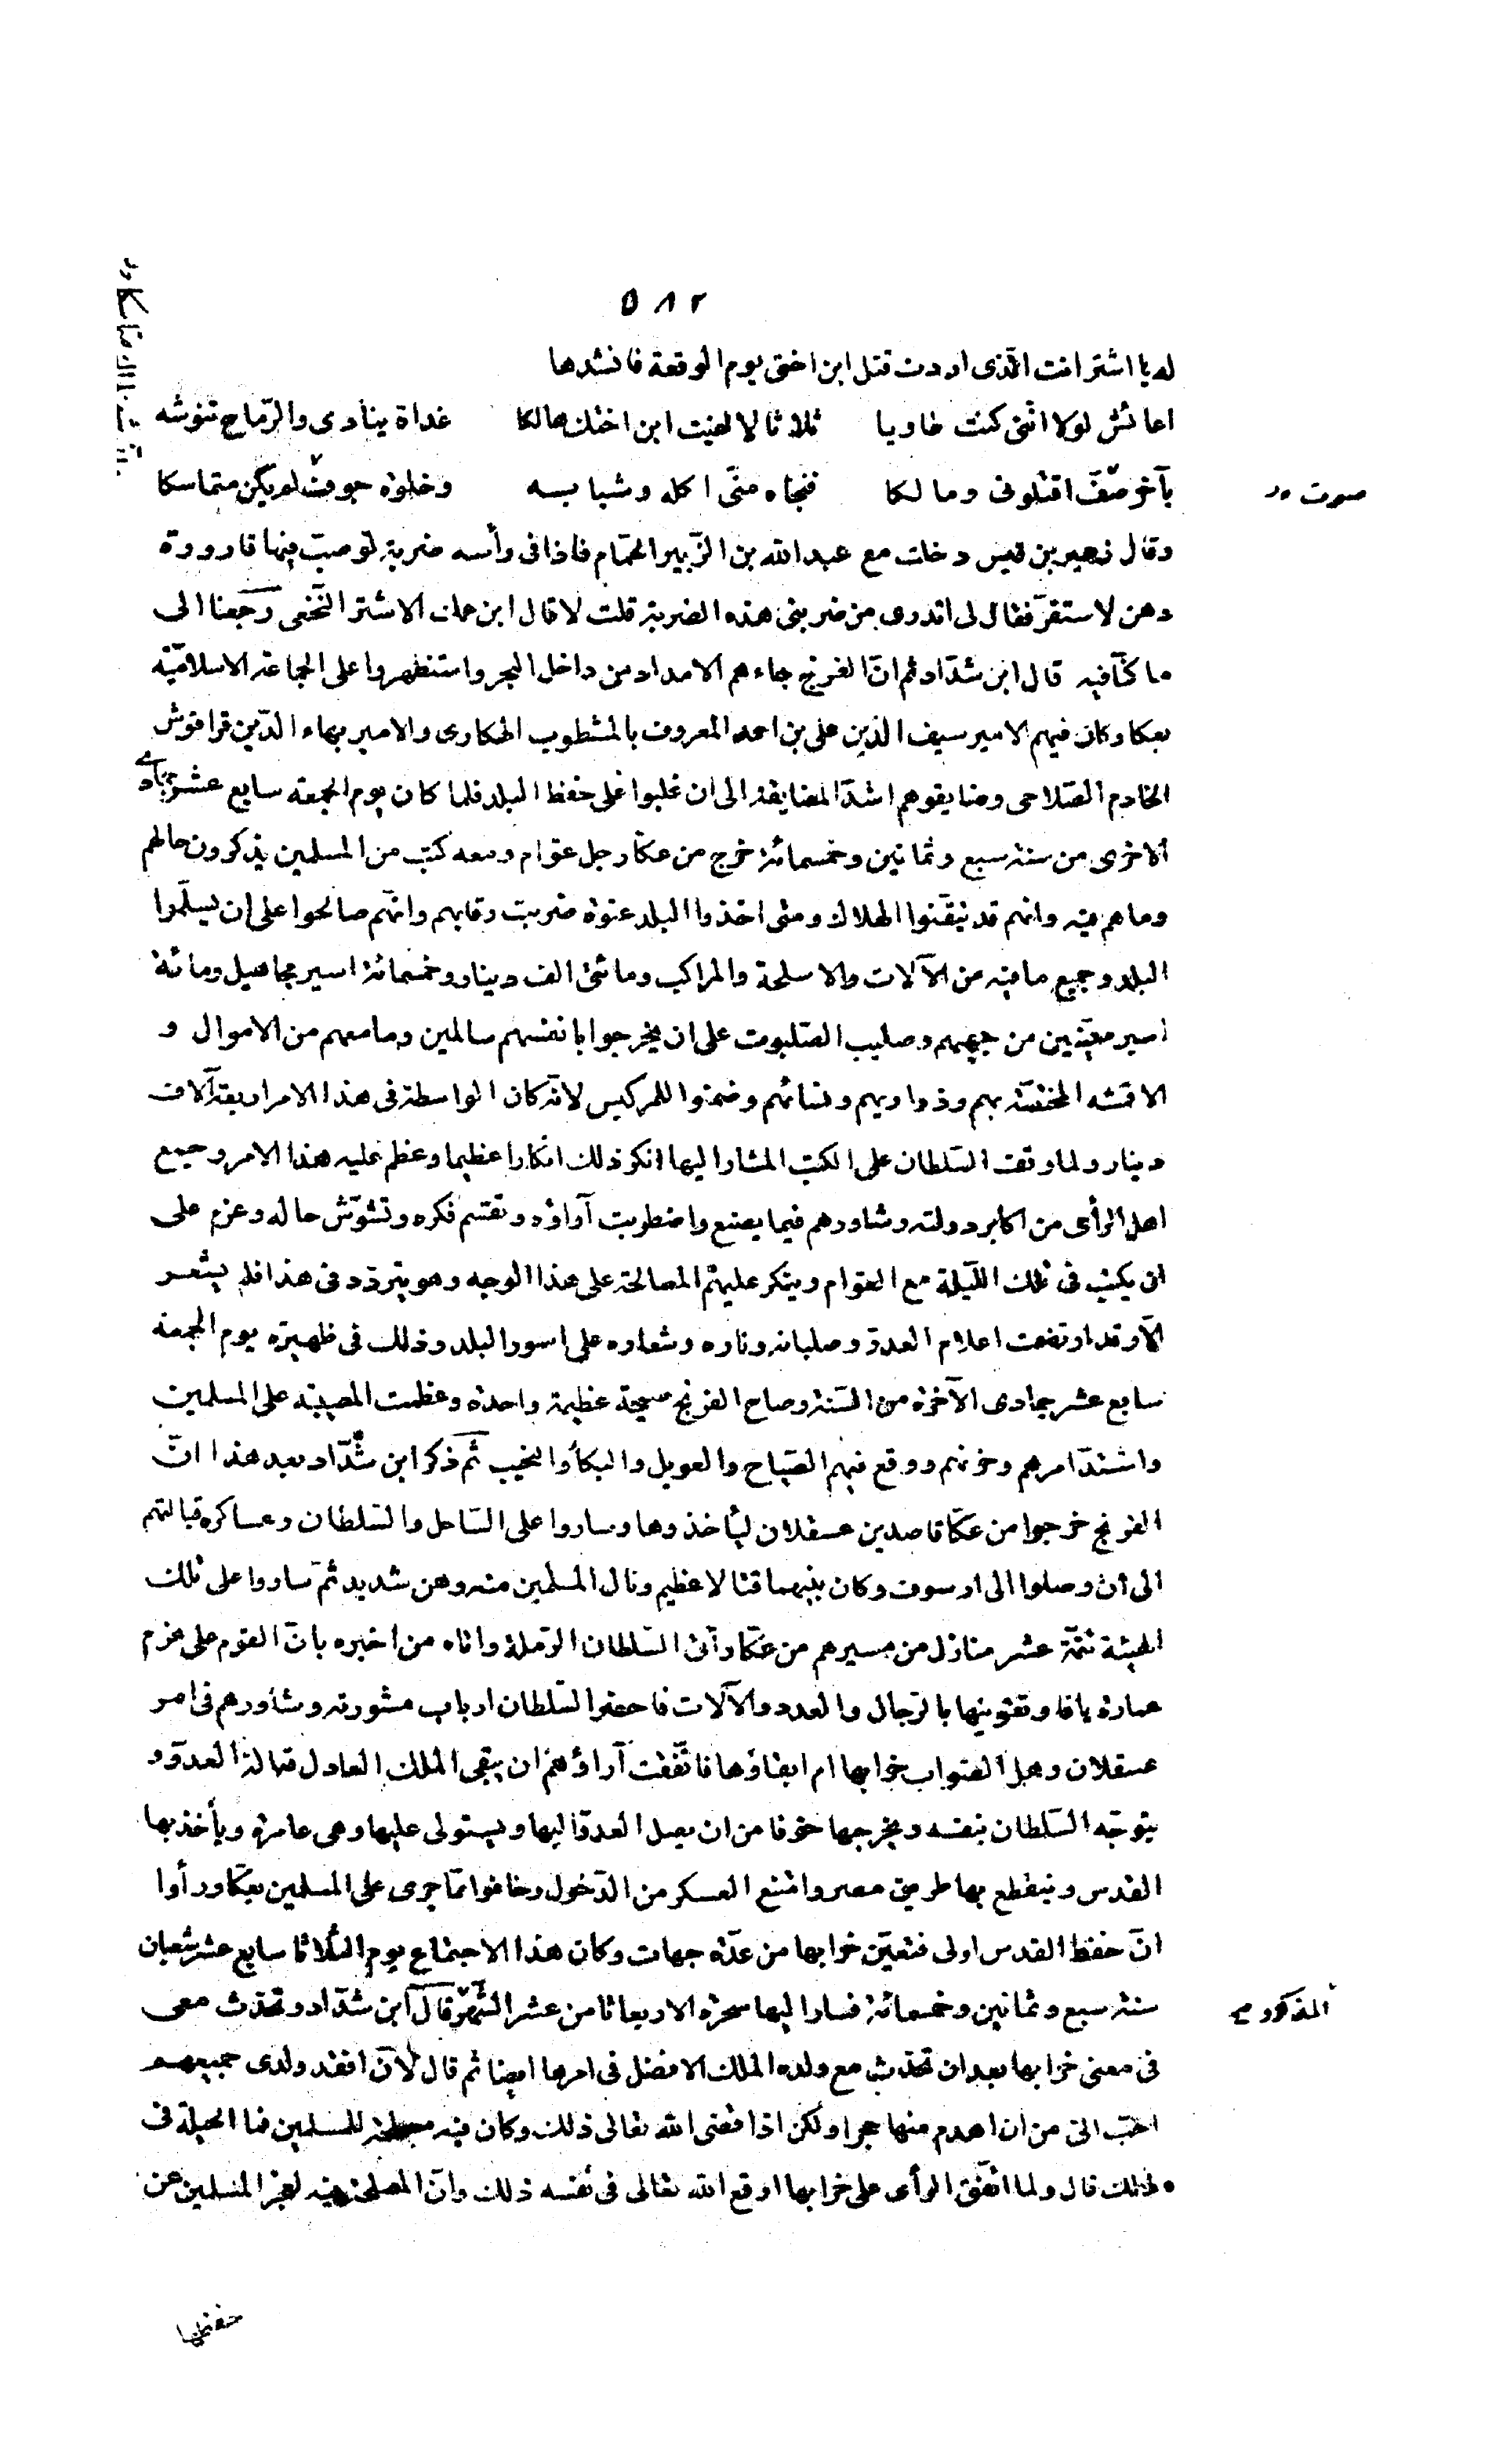 ٥٨٢
له يا اشتر انت الذى اردت قتل ابن اختى يوم الوقعة فانشدها
اعائش لولا اننى كنت طاويا ثلاثا لالفيت ابن اختك هالكا غداة ينادى والرماح تنوشه
بآخر صفّ اقتلونى ومالكا فنجاه منّى اكله وشبابه وخلوة جوف لم يكن متماسكا
صوت
وقال زهير بن قيس دخلت مع عبد الله بن الزّبير الحمّام فاذا فى رأسه ضربة لو صبّ فيها قارورة
دهن لاستقرّ فقال لى اتدرى من ضربنى هذه الضربة قلت لا قال ابن عمك الاشتر النّخعى رجعنا الى
ما كنّا فيه قال ابن شدّاد ثم انّ الفرنج جاءهم الامداد من داخل البحر واستظهروا على الجماعة الاسلاميّة
بعكا وكان فيهم الامير سيف الدّين على بن احمد المعروف بالمشطوب الهكارى والامير بهاء الدّين قراقوش
الخادم الصّلاحى وضايقوهم اشدّ المضايقة الى ان غلبوا على حفظ البلد فلما كان يوم الجمعة سابع عشر جمادى
الاخرى من سنة سبع وثمانين وخمسمائة خرج من عكّا رجل عوّام ومعه كتب من المسلمين يذكرون حالهم
وما هم فيه وانهم قد تيقّنوا الهلاك ومتى اخذوا البلد عنوة ضربت رقابهم وانّهم صالحوا على ان يسلّموا
البلد وجميع ما فيه من الآلات والاسلحة والمراكب ومائتى الف دينار وخمسمائة اسير مجاهيل ومائة
اسير معيّنين من جهتهم وصليب الصّلبوت على ان يخرجوا بانفسهم سالمين وما معهم من الاموال و
الاقمشه المختصّة بهم وذراريهم ونسائهم وضمنوا للمركيس لانّه كان الواسطة فى هذا الامر اربعة آلاف
دينار ولما وقف السّلطان على الكتب المشار اليها انكر ذلك انكارا عظيما وعظم عليه هذا الامر وجمع
اهل الرأى من اكابر دولته وشاورهم فيما يصنع واضطربت آراؤه وتقسّم فكره وتشوّش حاله وعزم على
ان يكتب فى تلك اللّيلة مع العوام وينكر عليهم المصالحة على هذا الوجه وهو يتردّد فى هذا فلم يشعر
الّا وقد ارتفعت اعلام العدوّ وصلبانه وناره وشعاره على اسور البلد وذلك فى ظهيرة يوم الجمعة
سابع عشر جمادى الآخرة من السّنة وصاح الفرنج صيحة عظيمة واحدة وعظمت المصيبة على المسلمين
واشتدّ امرهم وحزنهم ووقع فيهم الصّياح والعويل والبكأ والنحيب ثمّ ذكر ابن شدّاد بعد هذا انّ
الفرنج خرجوا من عكّا قاصدين عسقلان ليأخذوها وساروا على السّاحل والسّلطان وعساكره قبالتهم
الى ان وصلوا الى ارسوف وكان بينهما قتالا عظيم ونال المسلمين منه وهن شديد ثمّ ساروا على تلك
الهيئة تتمّة عشر منازل من مسيرهم من عكّا واتى السّلطان الرّملة واتاه من اخبره بانّ القوم على عزم
عمارة يافا وتقويتها بالرّجال والعدد والآلات فاحضر السّلطان ارباب مشورته وشاورهم فى امر
عسقلان وهل الصّواب خرابها ام ابقاؤها فاتّفقت آراؤهم ان يبقى الملك العادل قبالة العدوّ و
يتوجّه السّلطان بنفسه ويخرجها خوفا من ان يصل العدوّ اليها ويستولى عليها وهى عامرة ويأخذ بها
القدس وينقطع بها طريق مصر وامتنع العسكر من الدّخول وخافوا ممّا جرى على المسلمين بعكّا ورأوا
انّ حفظ القدس اولى فتعيّن خرابها من عدّة جهات وكان هذا الاجتماع يوم الثّلاثا سابع عشر شعبان
سنة سبع وثمانين وخمسمائة فسار اليها سحرة الاربعا ثامن عشر الشّهر قال ابن شدّاد وتحدّث معى
المذكور
فى معنى خرابها بعد ان تحدّث مع ولده الملك الافضل فى امرها ايضا ثم قال لان افقد ولدى جميعهم
احبّ الىّ من ان اهدم منها حجرا ولكن اذا قضى الله تعالى ذلك وكان فيه مصلحة للمسلمين فما الحيلة فى
ذلك قال ولما اتّفق الرأى على خرابها اوقع الله تعالى فى نفسه ذلك وانّ المصلحة فيه لعجز المسلمين عن
حفظها